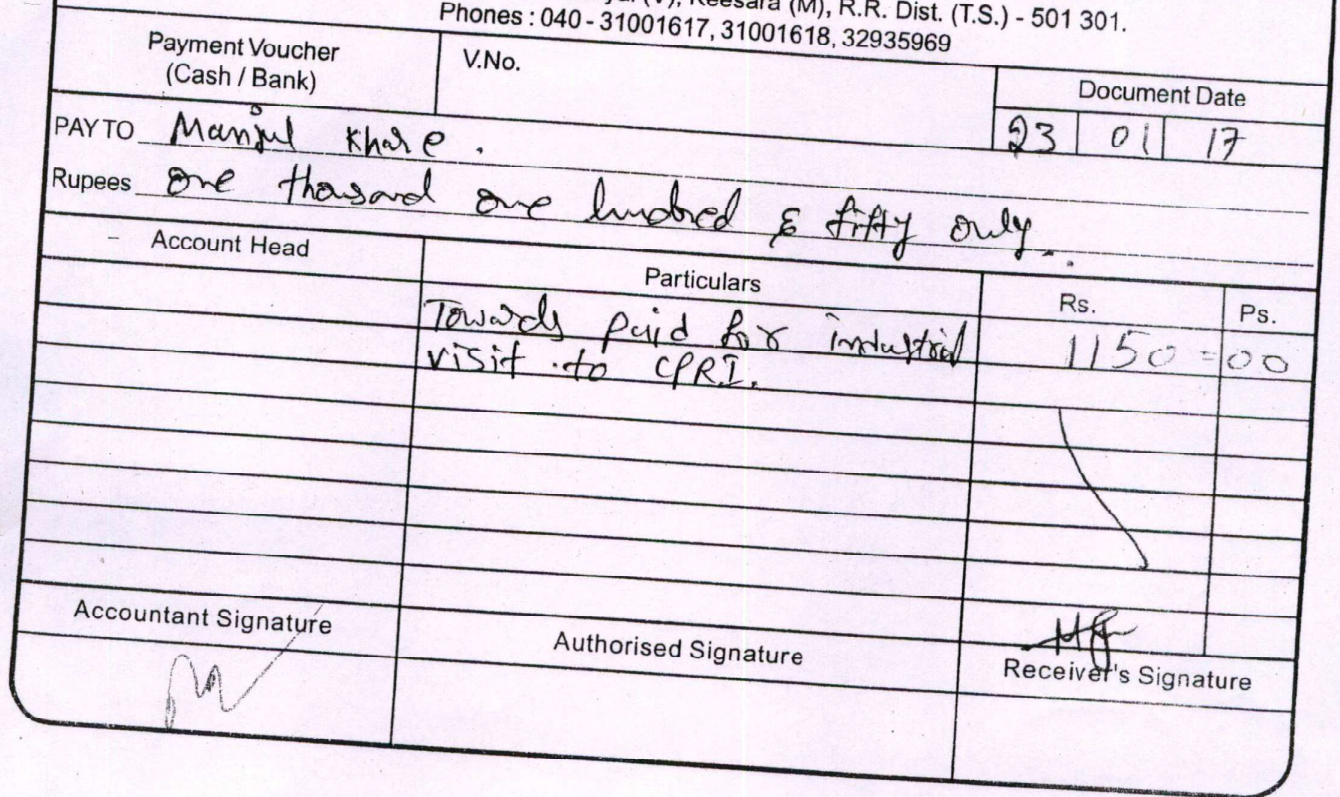 (V), Keesara (M), R.R. Dist. (T.S.) - 501 301.
Phones : 040 - 31001617, 31001618, 32935969
Payment Voucher
(Cash / Bank)
V.No.
Document Date
23 01 17
PAY TO Manjul Khare.
Rupees one thousand one hundred & fifty only..
Account Head
Particulars
Rs.
Ps.
Towards paid for industrial
1150=00
visit to CPRI.
Accountant Signature
Authorised Signature
Receiver's Signature